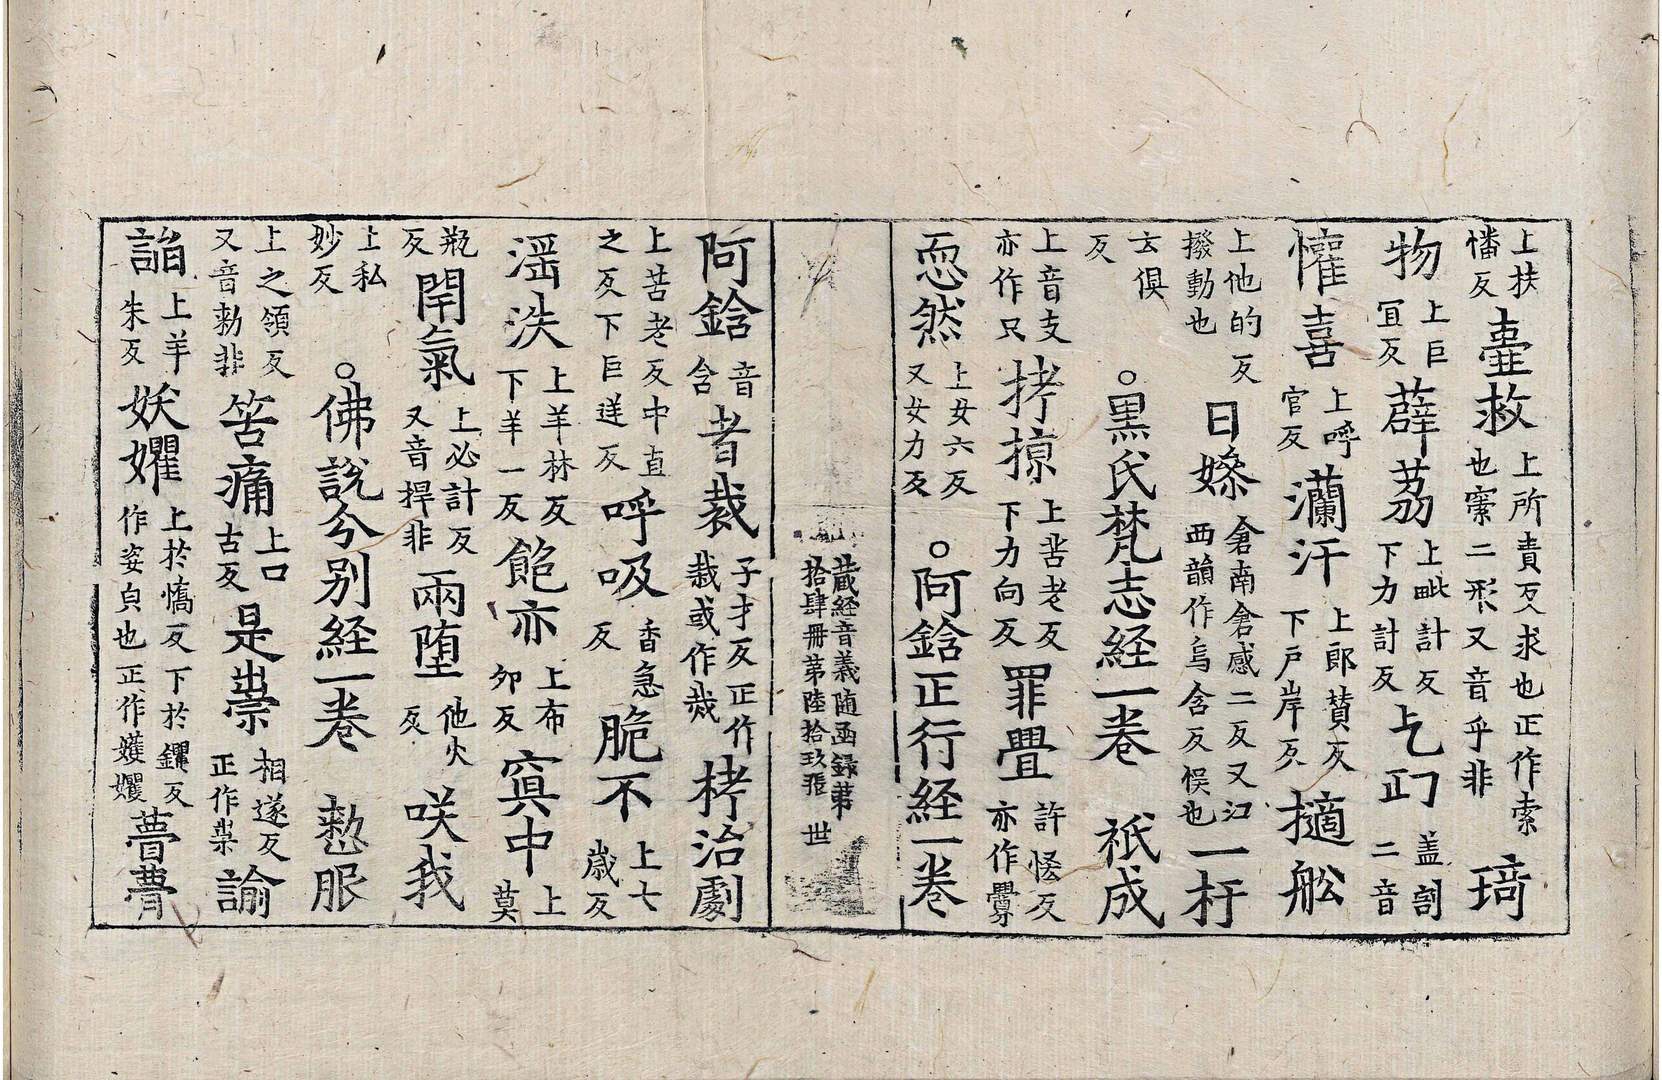 上扶幡反 臺救 上所責反求也正作索也𡩡二形又音乎非 琦
物 上巨冝反 薜荔 上毗計反下力計反 乞匃 盖割二音
懽喜 上呼官反 灡汗 上郎賛反下戸岸反 擿舩
上他的反撥動也 日㜗 倉南倉感二反又江西韻作烏含反悮也 一杅
云俱反 。黒氏梵志経一巻 祇成
上音支亦作只 拷掠 上苦老反下力向反 罪畳 許𢙣反亦作釁
恧然 上女六反又女力反 。阿鋡正行経一巻
藏経音義随函録第拾肆冊第陸拾玖張 世
阿鋡 音含 者裁 子才反正作栽或作烖 栲治劇
上苦老反中直之反下巨逆反 呼吸 香急反 脆不 上七歳反
滛泆 上羊林反下羊一反 飽亦 上布夘反 寘中 上莫
瓶反 閈氣 上必計反又音捍非 兩堕 他火反 咲我
上私妙反 。佛說分别経一巻 憗服
上之領反又音勑非 筈痛 上口古反 是祟 相遂反正作祟 諭
諂 上羊朱反 妖嬥 上於憍反下於钁反作姿皃也正作嬳㜰 瞢瞢